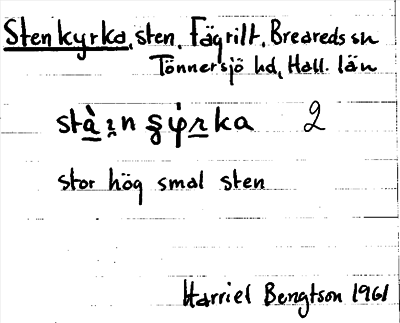 Stenkyrka, sten. Fägrilt, Breareds sn
Tönnersjö hd, Hall. län
2
stor hög smal sten
Harriel Bengtson 1961